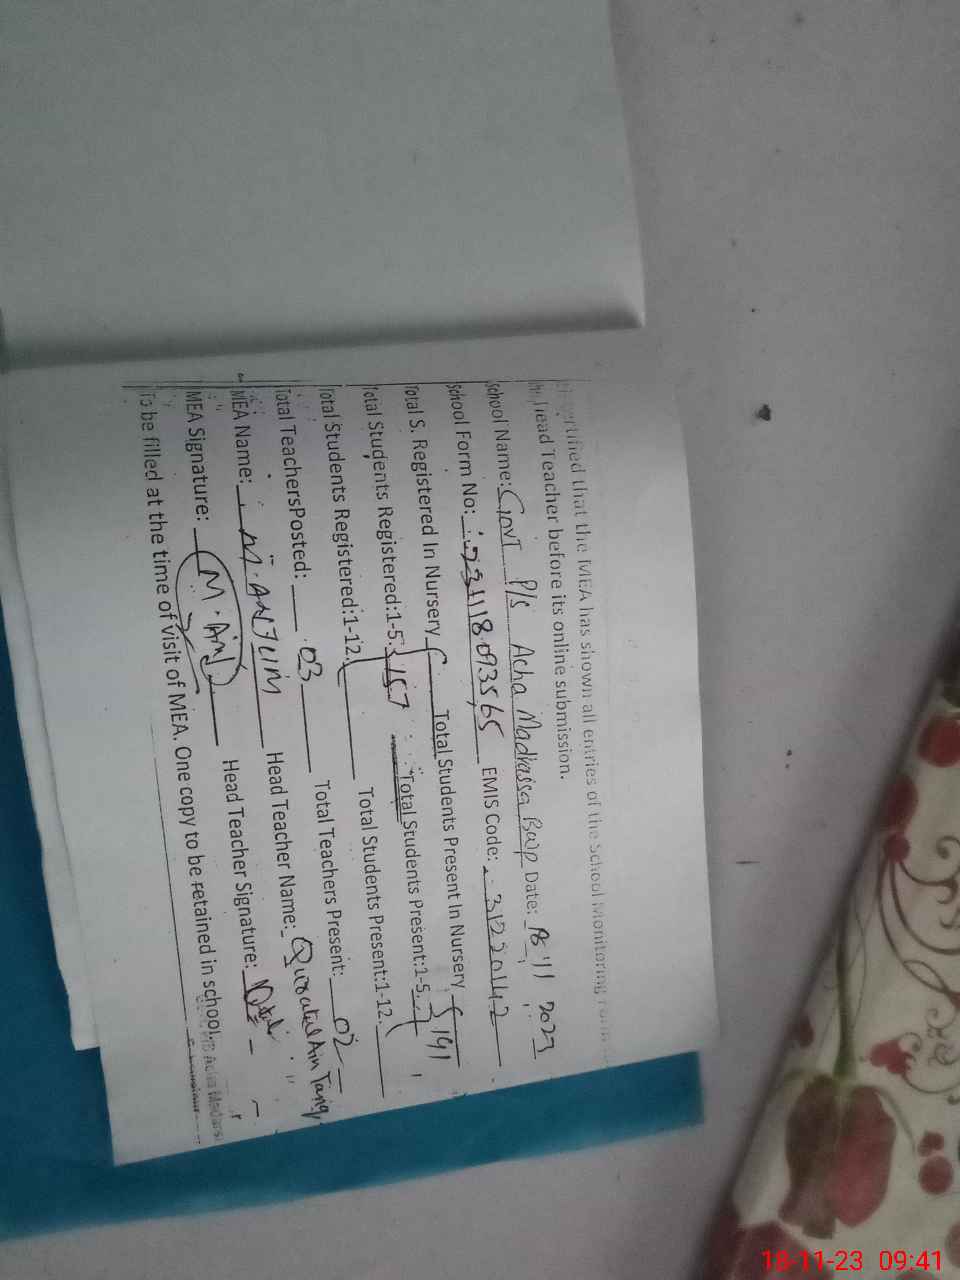 certified that the MEA has shown all entries of the School Monitoring
Head Teacher before its online submission.
School Name: Govt P/S Acha Madrassa Bwp Date: 18 11 2023
School Form No: 231118093565 EMIS Code: 31220142
Total S. Registered In Nursery Total Students Present In Nursery
Total Students Registered:1-5: 157 Total Students Present:1-5. 141
Total Students Registered:1-12. Total Students Present:1-12.
Total TeachersPosted: 03 Total Teachers Present: 02
MEA Name: M. ANJUM Head Teacher Name: Quratul Ain Tariq
MEA Signature: M. Anj Head Teacher Signature:
To be filled at the time of visit of MEA. One copy to be retained in school.
Acha Madars
18-11-23 09:41